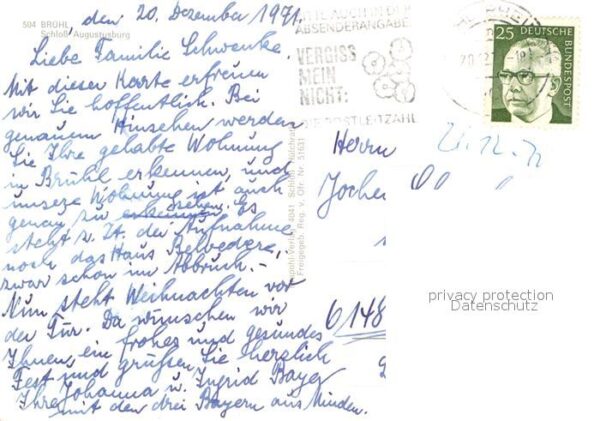 504 BRÜHL
Schloß Augustusburg
, den 20. Dezember 1971.
Liebe Familie Schwenke.
Mit dieser Karte erfreuen
wir Sie hoffentlich. Bei
genauem Hinsehen werden
Sie Ihre gehabte Wohnung
in Brühl erkennen, und
unsere Wohnung ist auch
genau zu ersehen. Es
steht z. Zt. der Aufnahme
noch das Haus Belvedere,
zwar schon im Abbruch.-
Nun steht Weihnachten vor
der Tür. Da wünschen wir
Ihnen ein frohes und gesundes
Fest und grüßen Sie herzlich
Ihre Johanna u. Ingrid Bayer
mit den drei Bayern aus Minden.
Freigegeb. Reg.
AUCH IN DER
ABSENDERANGABE
VERGISS
MEIN
NICHT:
POSTLEITZAHL
25
DEUTSCHE
BUNDESPOST
21.12.71
Herrn
Jochen
6148
privacy protection
Datenschutz